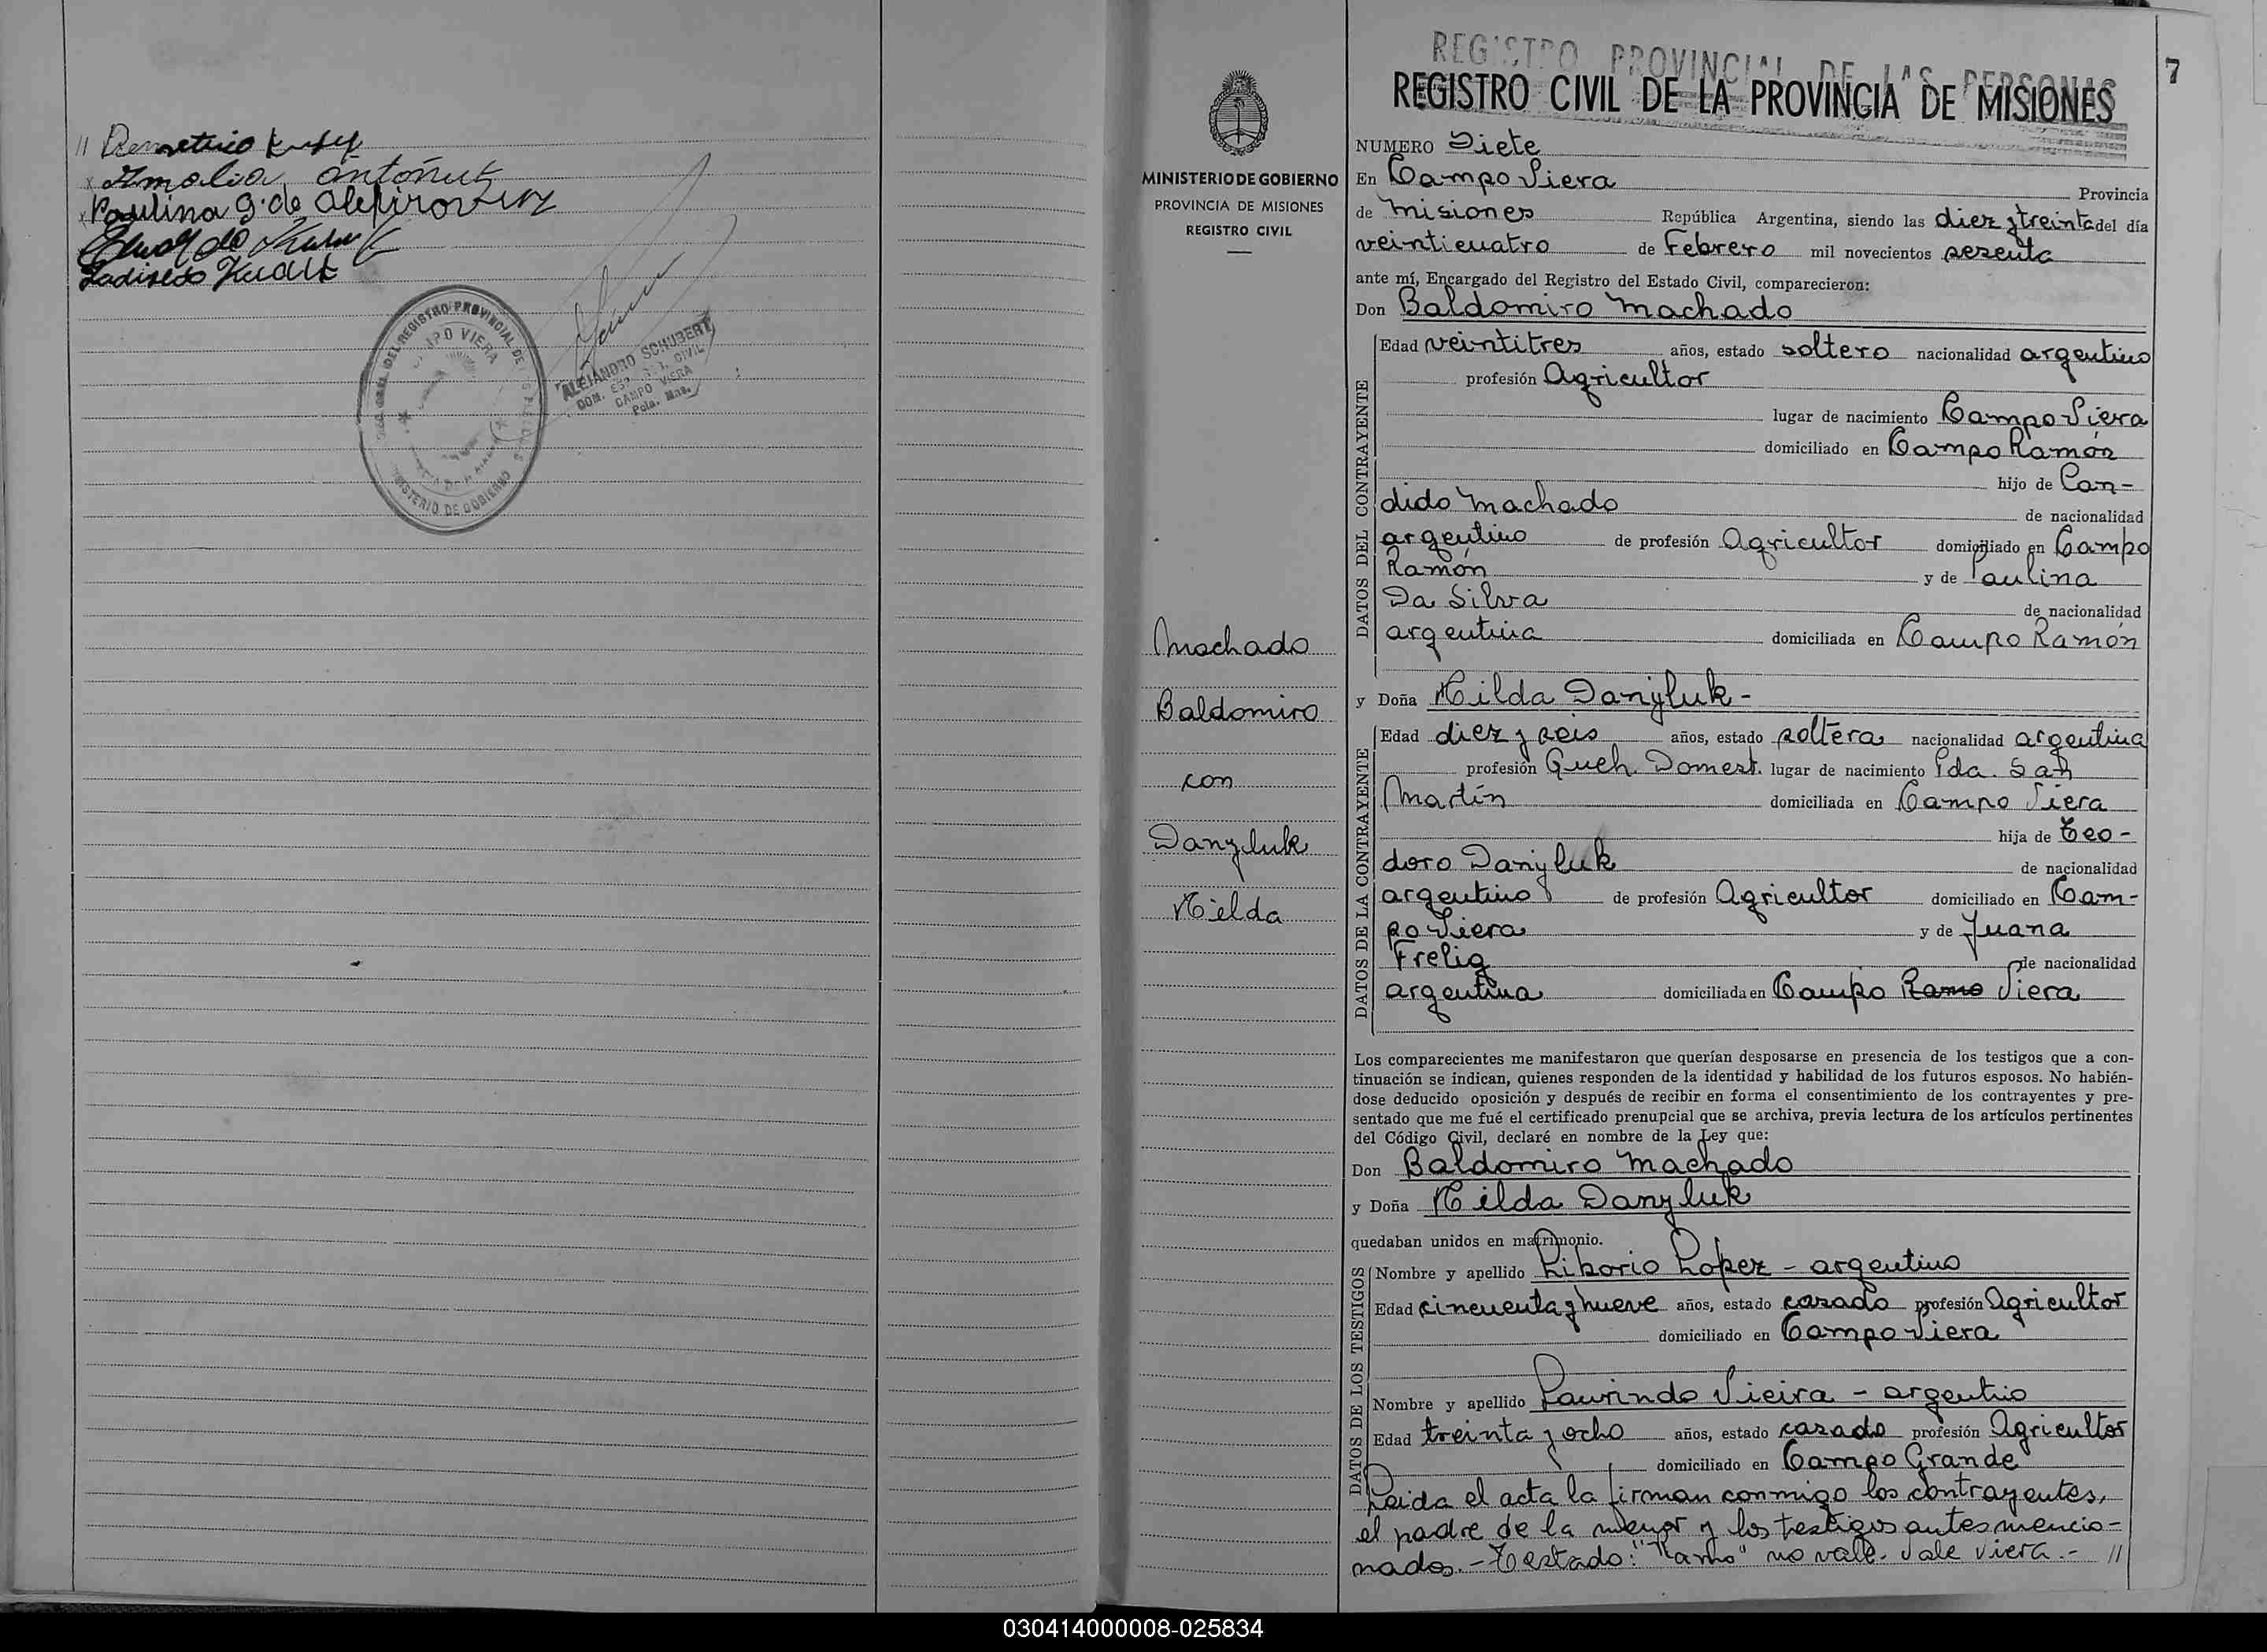 // Demetrio
x Amalia Antoñuk
x Paulina G. de
Ladislao
DEL REGISTRO PROVINCIAL DE
CAMPO VIERA
MINISTERIO DE GOBIERNO
ALEJANDRO SCHUBERT
CAMPO VIERA
Pcia. Mns.
MINISTERIO DE GOBIERNO
PROVINCIA DE MISIONES
REGISTRO CIVIL
Machado
Baldomiro
con
Danyluk
Hilda
7
REGISTRO PROVINCIAL DE LAS PERSONAS
REGISTRO CIVIL DE LA PROVINCIA DE MISIONES
NUMERO Siete
En Campo Viera Provincia
de Misiones República Argentina, siendo las diez y treinta del día
veinticuatro de Febrero mil novecientos sesenta
ante mí, Encargado del Registro del Estado Civil, comparecieron:
Don Baldomiro Machado
DATOS DEL CONTRAYENTE
Edad veintitres años, estado soltero nacionalidad argentino
profesión Agricultor
lugar de nacimiento Campo Viera
domiciliado en Campo Ramón
hijo de Can-
dido Machado de nacionalidad
argentino de profesión Agricultor domiciliado en Campo
Ramón y de Paulina
Da Silva de nacionalidad
argentina domiciliada en Campo Ramón
y Doña Hilda Danyluk -
DATOS DE LA CONTRAYENTE
Edad diez y seis años, estado soltera nacionalidad argentina
profesión Queh. Domest. lugar de nacimiento Pda. San
Martín domiciliada en Campo Viera
hija de Teo-
doro Danyluk de nacionalidad
argentino de profesión Agricultor domiciliado en Cam-
po Viera y de Juana
Frelig de nacionalidad
argentina domiciliada en Campo Ramo Viera
Los comparecientes me manifestaron que querían desposarse en presencia de los testigos que a con-
tinuación se indican, quienes responden de la identidad y habilidad de los futuros esposos. No habién-
dose deducido oposición y después de recibir en forma el consentimiento de los contrayentes y pre-
sentado que me fué el certificado prenupcial que se archiva, previa lectura de los artículos pertinentes
del Código Civil, declaré en nombre de la Ley que:
Don Baldomiro Machado
y Doña Hilda Danyluk
quedaban unidos en matrimonio.
DATOS DE LOS TESTIGOS
Nombre y apellido Liborio Lopez - argentino
Edad cincuenta y nueve años, estado casado profesión Agricultor
domiciliado en Campo Viera
Nombre y apellido Laurindo Vieira - argentino
Edad treinta y ocho años, estado casado profesión Agricultor
domiciliado en Campo Grande
Leida el acta la firman conmigo los contrayentes,
el padre de la menor y los testigos antes mencio-
nados. - Testado: "Ramo" no vale. Vale Viera. - //
030414000008-025834